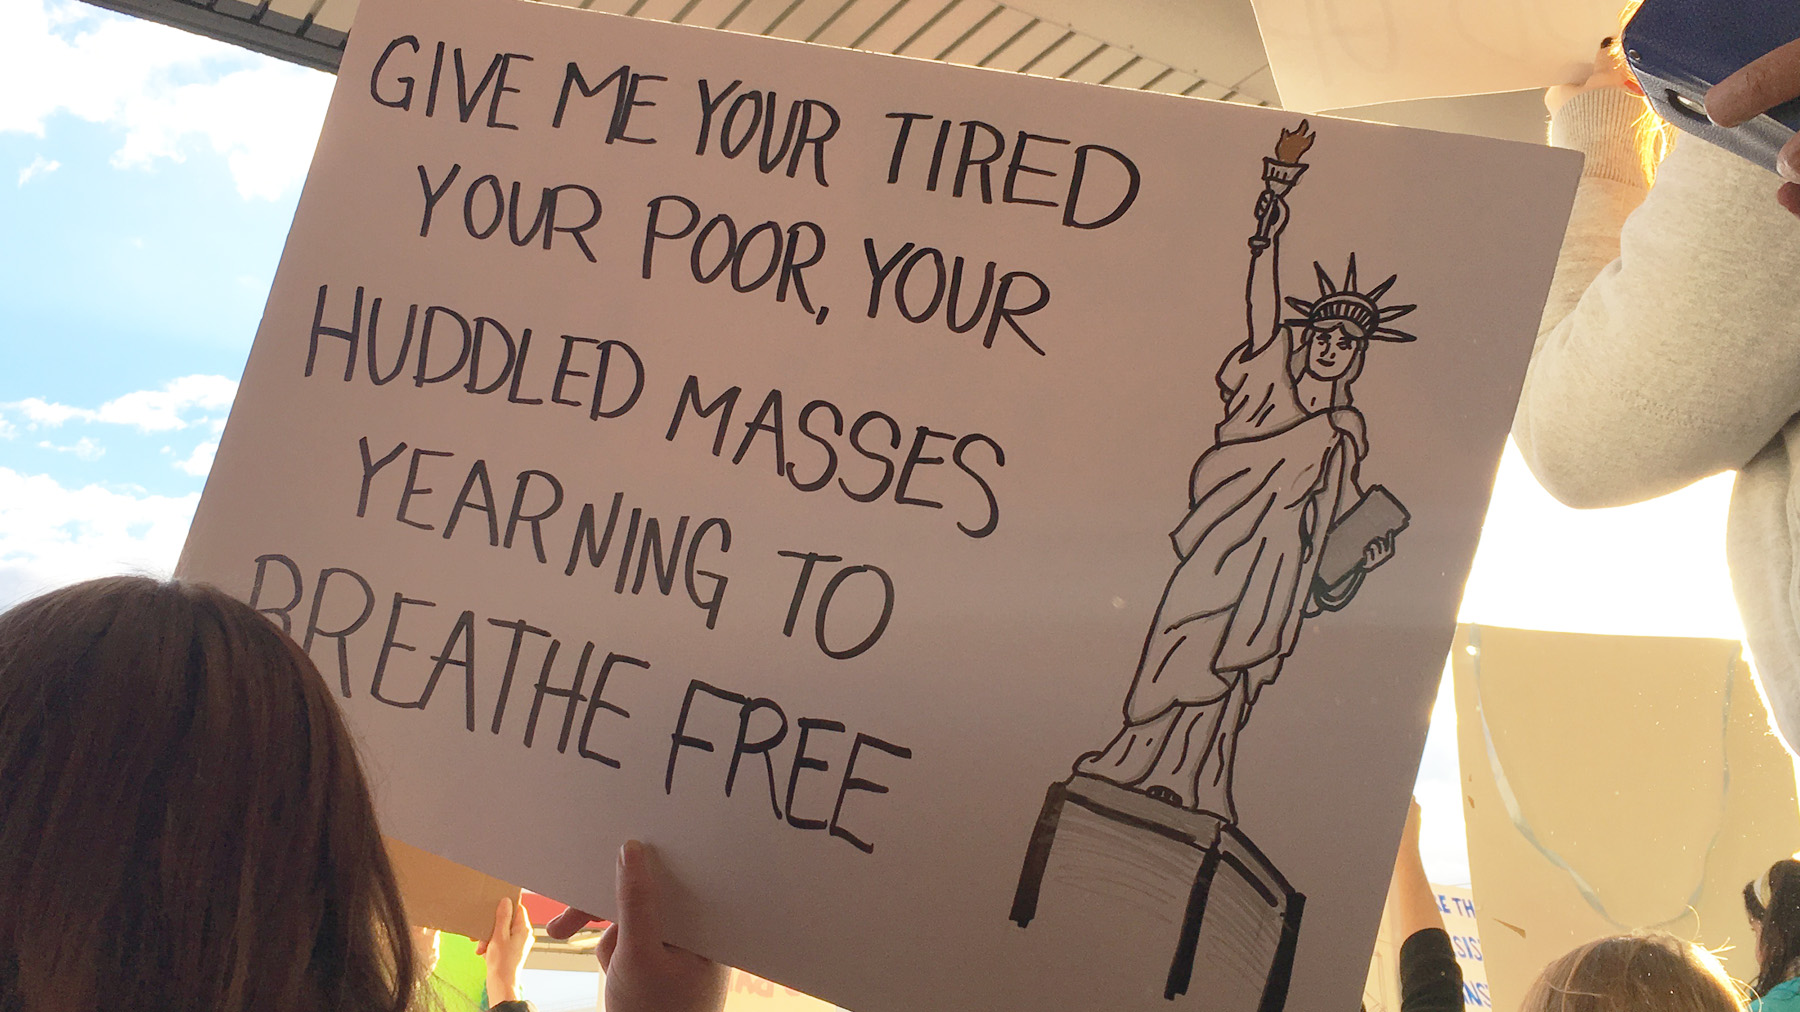 GIVE ME YOUR TIRED
YOUR POOR, YOUR
HUDDLED MASSES
YEARNING TO
BREATHE FREE